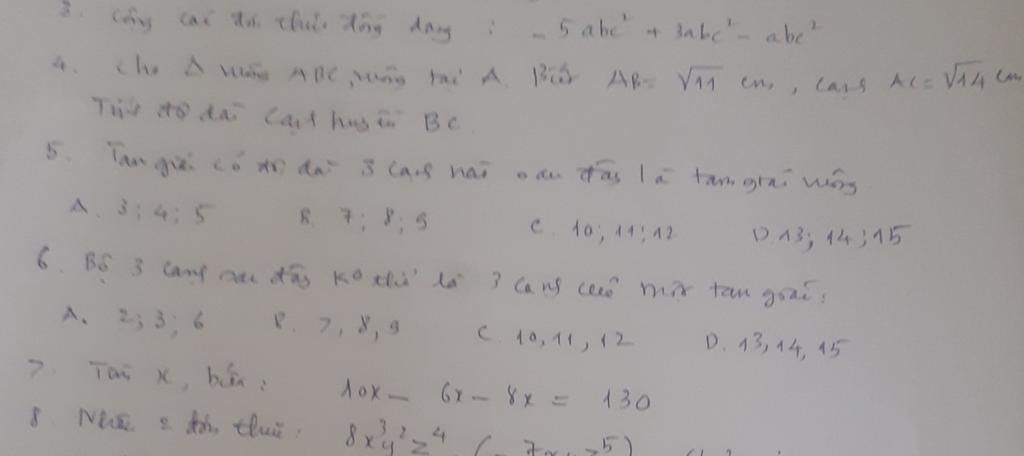 3. Cộng các đơn thức đồng dạng : - 5abc² + 3abc² - abc²
4. Cho Δ vuông ABC, vuông tại A. Biết AB = √11 cm, cạnh AC = √14 cm
Tính độ dài cạnh huyền BC
5. Tam giác có độ dài 3 cạnh nào sau đây là tam giác vuông
A. 3; 4; 5 B. 7; 8; 9 C. 10; 11; 12 D. 13; 14; 15
6. Bộ 3 cạnh sau đây k° thể là 3 cạnh của một tam giác:
A. 2; 3; 6 B. 7, 8, 9 C. 10, 11, 12 D. 13, 14, 15
7. Tìm x, biết: 10x - 6x - 8x = 130
8 Nhân 2 đơn thức: 8x³y²z⁴